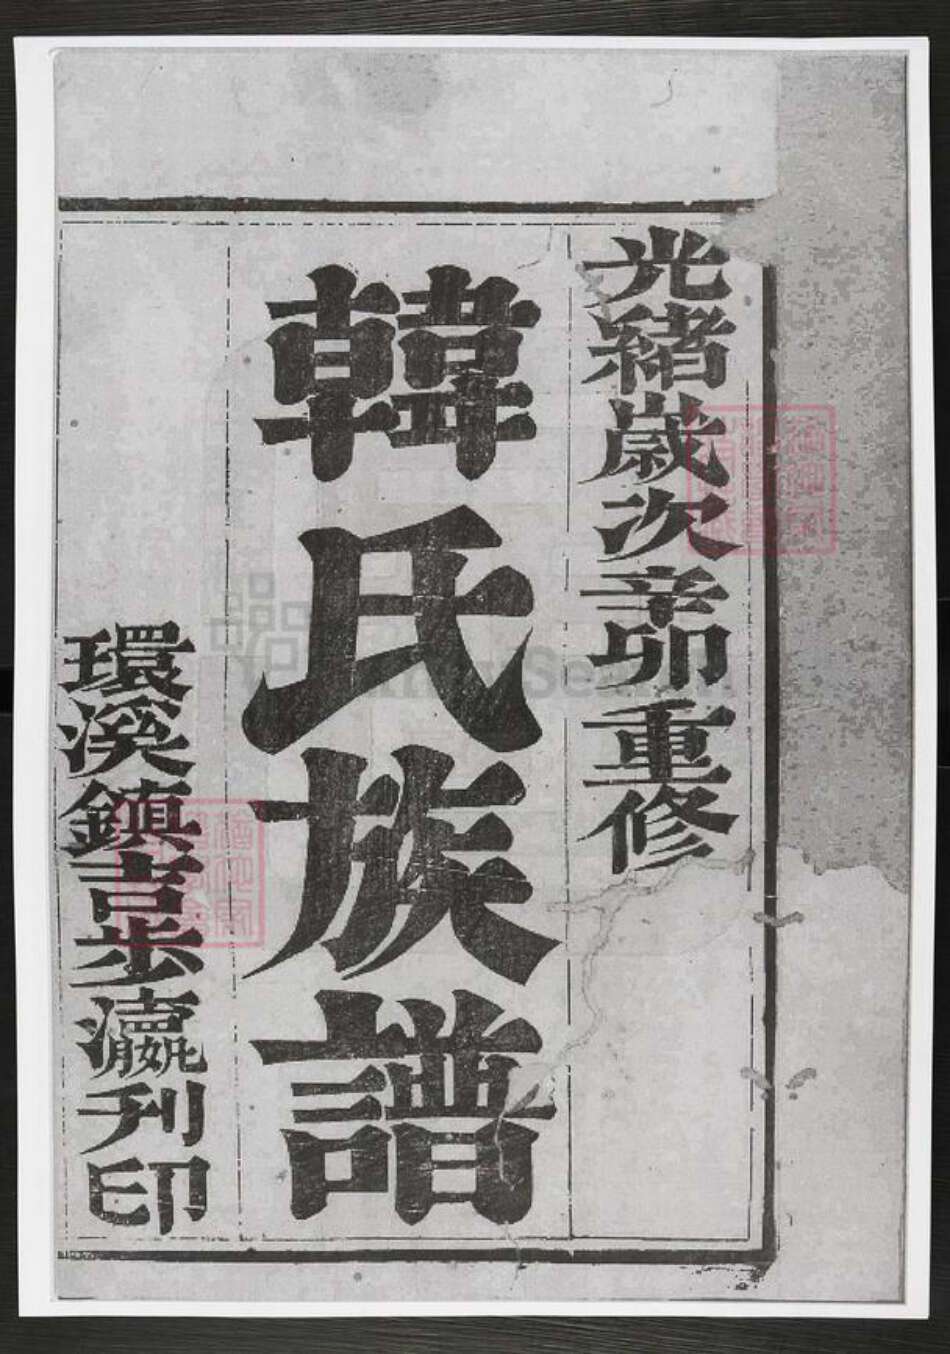 光緒歲次辛卯重修
韓氏族譜
環溪鎮吉步瀛刊印